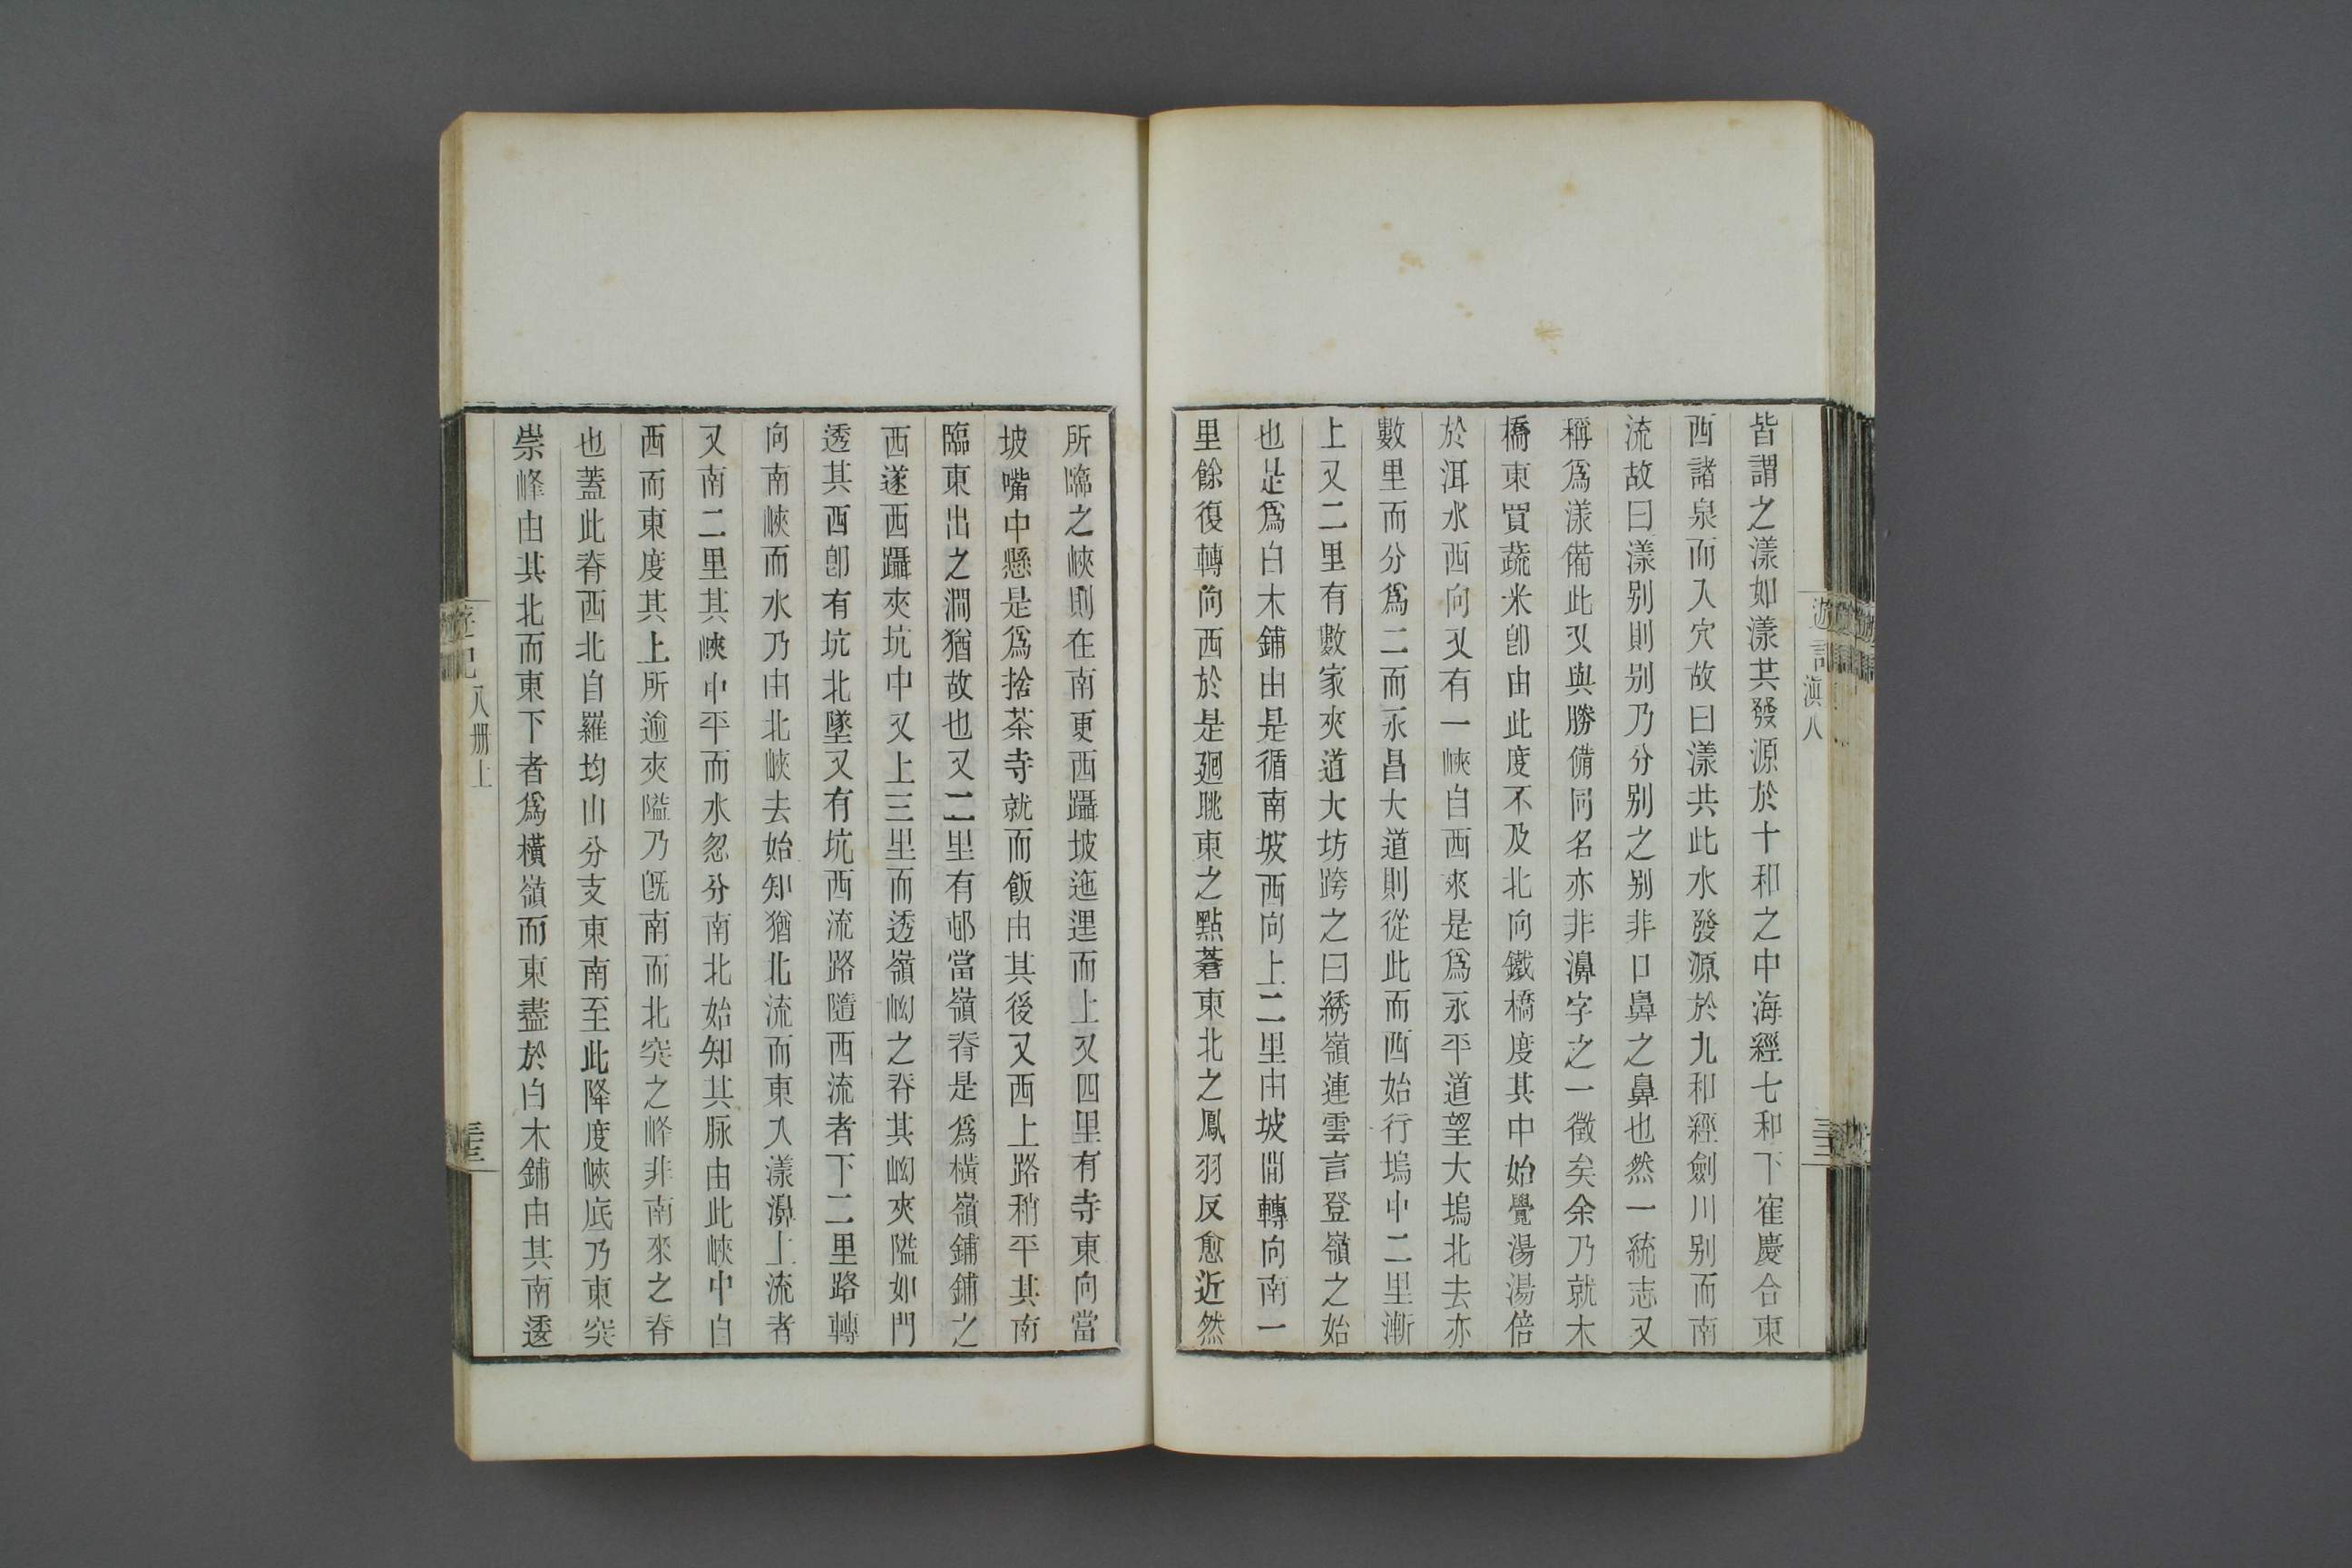 遊記
滇八
皆謂之漾如漾其發源於十和之中海經七和下隺慶合東
西諸泉而入穴故曰漾共此水發源於九和經劍川别而南
流故曰漾别則别乃分别之别非口鼻之鼻也然一統志又
稱爲漾備此又與勝備同名亦非濞字之一徵矣余乃就木
橋東買蔬米卽由此度不及北向鐵橋度其中始覺湯湯倍
於洱水西向又有一峽自西來是爲永平道望大塢北去亦
數里而分爲二而永昌大道則從此而西始行塢中二里漸
上又二里有數家夾道大坊跨之曰綉嶺連雲言登嶺之始
也是爲白木鋪由是循南坡西向上二里由坡間轉向南一
里餘復轉向西於是廻眺東之點蒼東北之鳳羽反愈近然
所臨之峽則在南更西躡坡迤邐而上又四里有寺東向當
坡嘴中懸是爲捨茶寺就而飯由其後又西上路稍平其南
臨東出之澗猶故也又二里有邨當嶺脊是爲橫嶺鋪鋪之
西遂西躡夾坑中又上三里而透嶺坳之脊其坳夾隘如門
透其西卽有坑北墜又有坑西流路隨西流者下二里路轉
向南峽而水乃由北峽去始知猶北流而東入漾濞上流者
又南二里其峽中平而水忽分南北始知其脉由此峽中自
西而東度其上所逾夾隘乃旣南而北突之峰非南來之脊
也蓋此脊西北自羅均山分支東南至此降度峽底乃東突
崇峰由其北而東下者爲橫嶺而東盡於白木鋪由其南逶
遊記
八册上